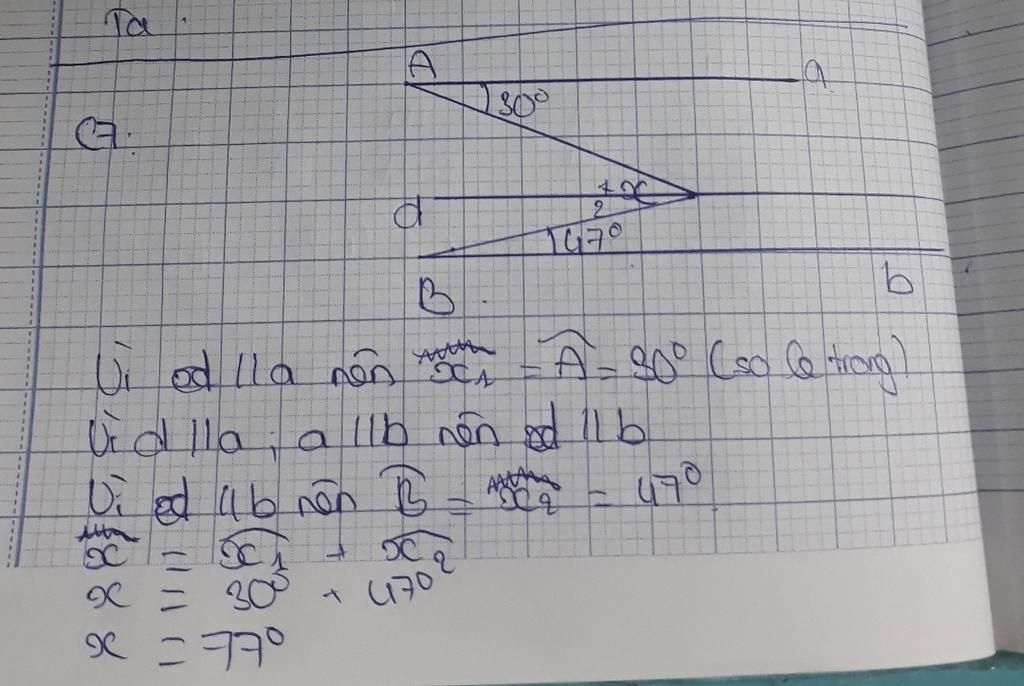 Ta.
A
a
30°
C7:
1 x
d
2
47°
B.
b
Vì d // a nên x1 = A = 30° (so le trong)
Vì d // a ; a // b nên d // b
Vì d // b nên B = x2 = 47°
x = x1 + x2
x = 30° + 47°
x = 77°